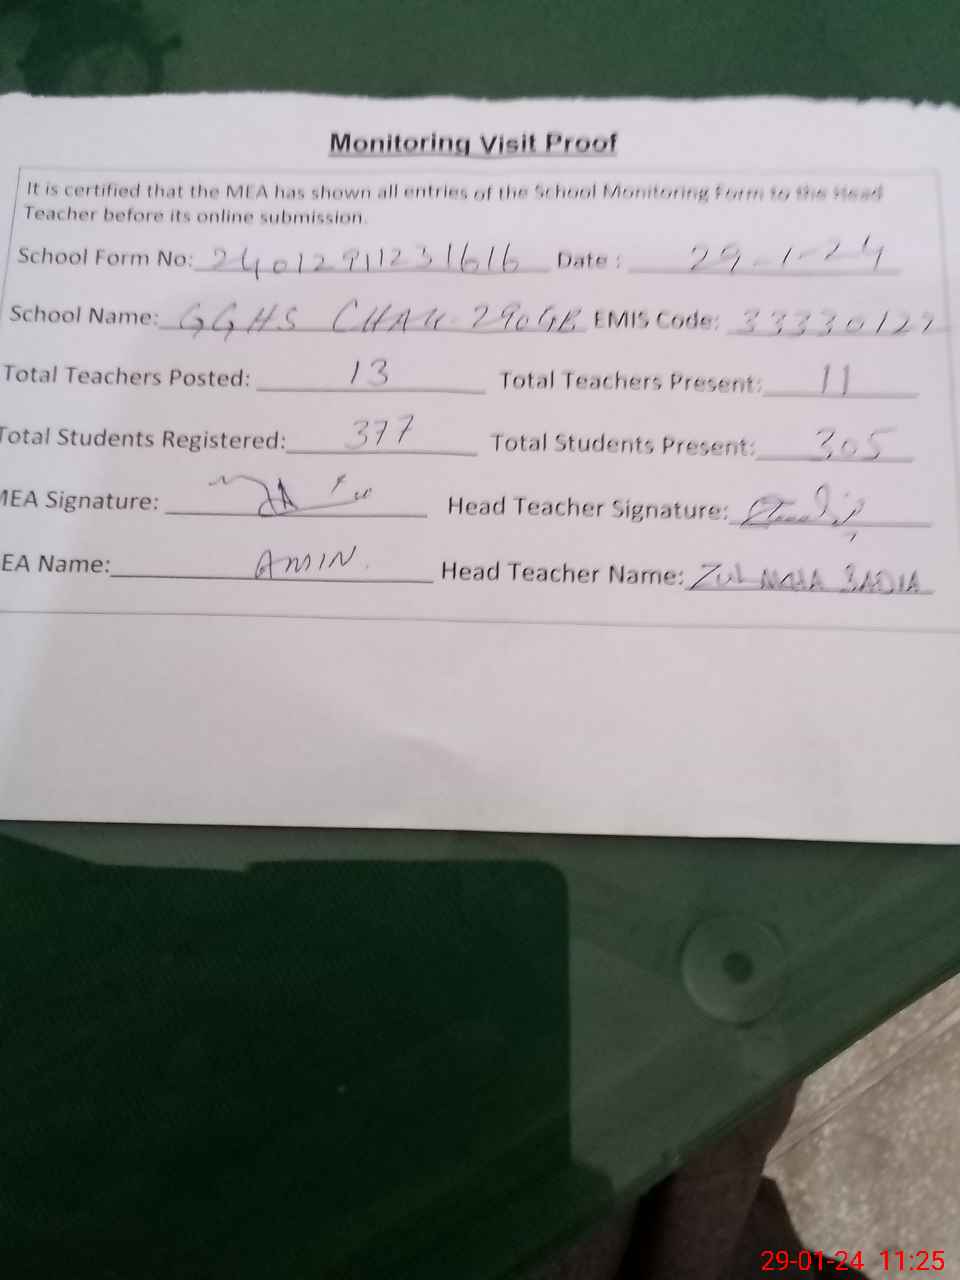 Monitoring Visit Proof
It is certified that the MEA has shown all entries of the School Monitoring Form to the Head
Teacher before its online submission.
School Form No: 24012911231616 Date : 29-1-24
School Name: GGHS CHAK 290GB EMIS Code: 33330127
Total Teachers Posted: 13 Total Teachers Present: 11
Total Students Registered: 377 Total Students Present: 305
MEA Signature: Head Teacher Signature:
EA Name: AMIN. Head Teacher Name: SADIA
29-01-24 11:25